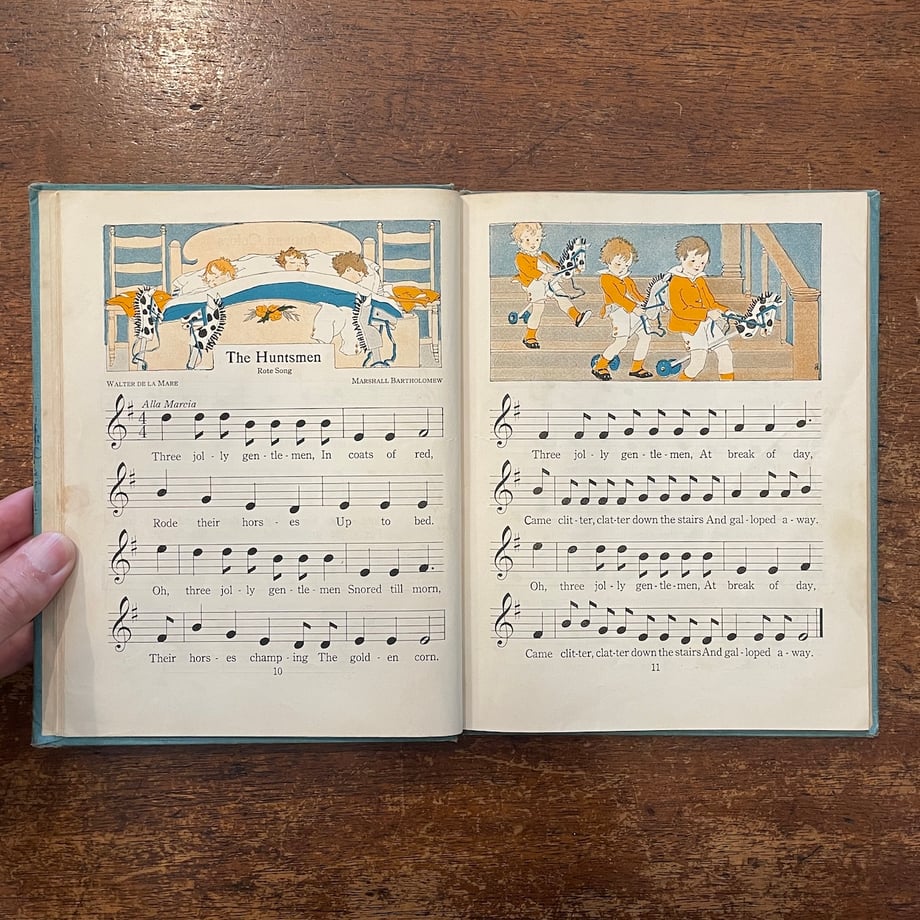 The Huntsmen
Rote Song
WALTER DE LA MARE
MARSHALL BARTHOLOMEW
Alla Marcia
4
4
Three jol - ly gen - tle - men, In coats of red,
Rode their hors - es Up to bed.
Oh, three jol - ly gen - tle - men Snored till morn,
Their hors - es champ - ing The gold - en corn.
10
Three jol - ly gen - tle - men, At break of day,
Came clit - ter, clat - ter down the stairs And gal - loped a - way.
Oh, three jol - ly gen - tle - men, At break of day,
Came clit - ter, clat - ter down the stairs And gal - loped a - way.
11